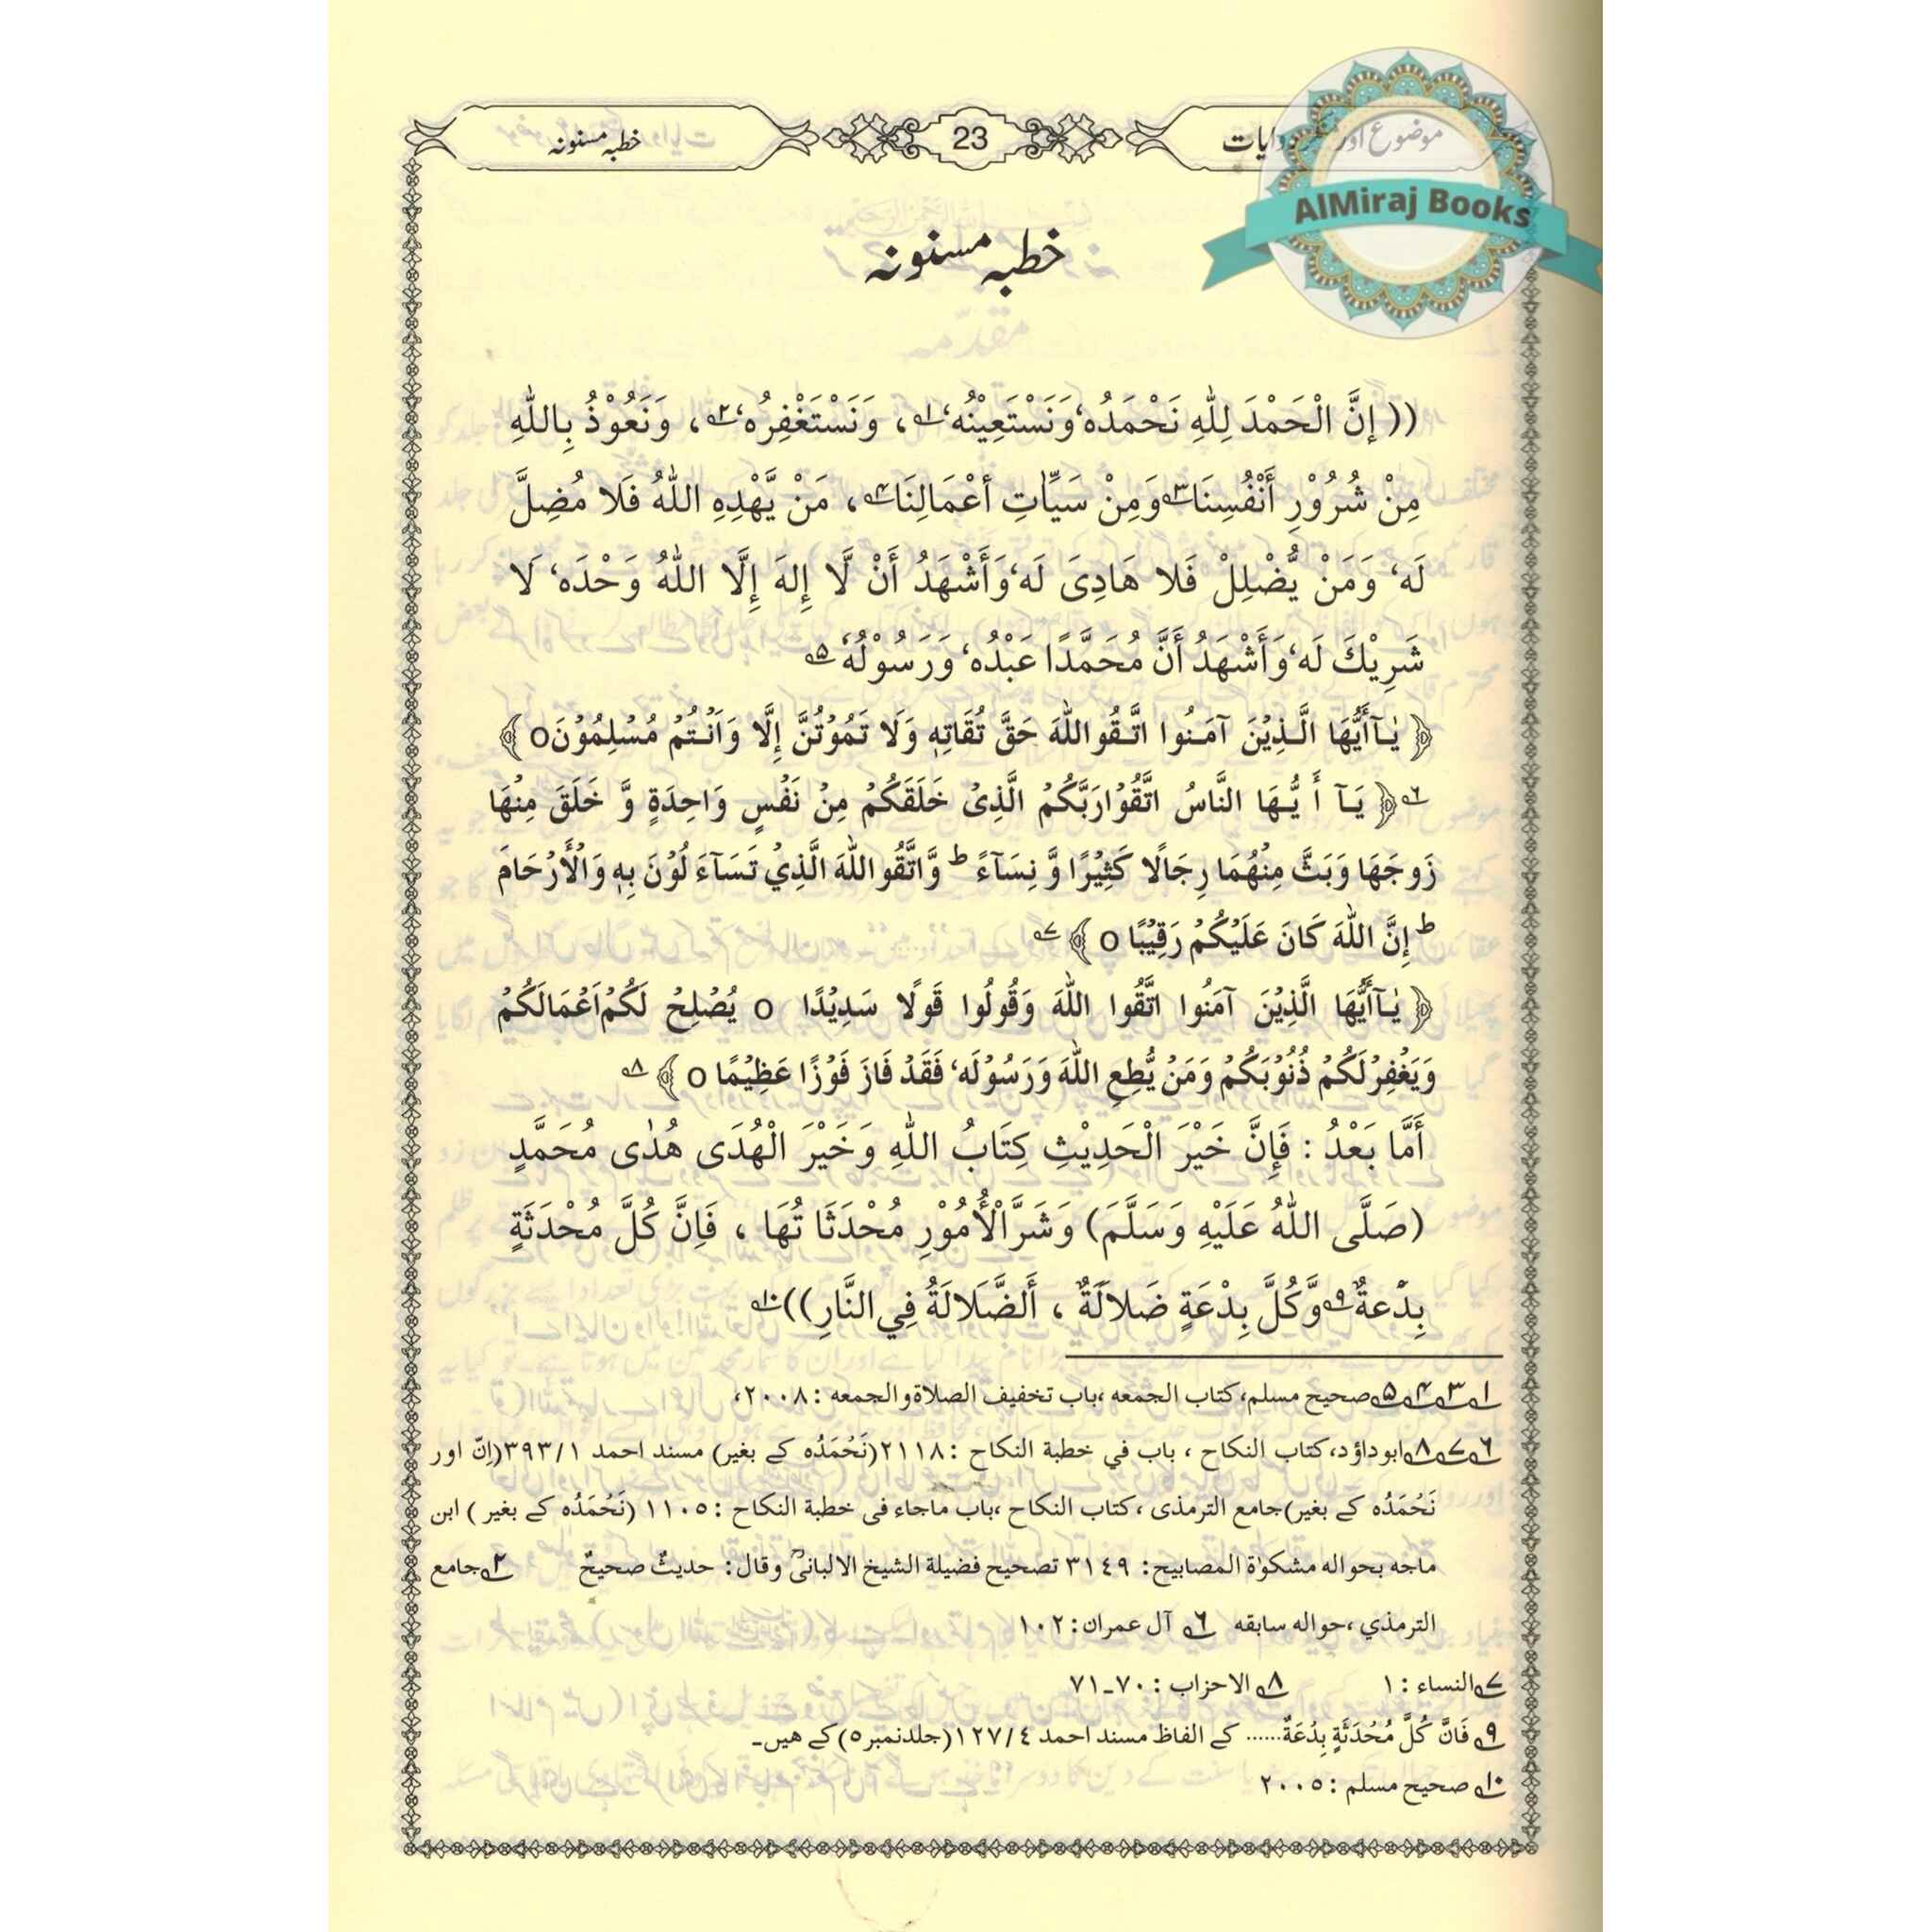 موضوع اور روایات
23
خطبہ مسنونہ
AlMiraj Books
خطبہ مسنونہ
(( إنَّ الْحَمْدَ لِلّٰهِ نَحْمَدُه‘ وَنَسْتَعِيْنُه‘ ؎۱ ، وَنَسْتَغْفِرُه‘ ؎۲ ، وَنَعُوْذُ بِاللّٰهِ
مِنْ شُرُوْرِ أَنْفُسِنَا ؎۳ وَمِنْ سَيِّاٰتِ أعْمَالِنَا ؎۴ ، مَنْ يَّهْدِهِ اللّٰهُ فَلا مُضِلَّ
لَه‘ وَمَنْ يُّضْلِلْ فَلا هَادِىَ لَه‘ وَأَشْهَدُ أَنْ لَّا إِلهَ إِلَّا اللّٰهُ وَحْدَه‘ لَا
شَرِيْكَ لَه‘ وَأَشْهَدُ أَنَّ مُحَمَّدًا عَبْدُه‘ وَرَسُوْلُهٗ ؎۵
﴿ يٰـآأَيُّهَا الَّـذِيْنَ آمَـنُوا اتَّـقُو اللّٰهَ حَقَّ تُقَاتِهٖ وَلَا تَمُوْتُنَّ إِلَّا وَاَنْـتُمْ مُسْلِمُوْنَo ﴾
؎۶ ﴿ يَـآ أَ يُّـهَا النَّاسُ اتَّقُوْا رَبَّكُمْ الَّذِىْ خَلَقَكُمْ مِنْ نَفْسٍ وَاحِدَةٍ وَّ خَلَقَ مِنْهَا
زَوجَهَا وَبَثَّ مِنْهُمَا رِجَالًا كَثِيْرًا وَّ نِسَآءً ط وَّاتَّقُو اللّٰهَ الَّذِيْ تَسَآءَ لُوْنَ بِهٖ وَالْأَرْحَامَ
ط إِنَّ اللّٰهَ كَانَ عَلَيْكُمْ رَقِيْبًا o ﴾ ؎۷
﴿ يٰـآأَيُّهَا الَّذِيْنَ آمَنُوا اتَّقُوا اللّٰهَ وَقُولُوا قَولًا سَدِيْدًا o يُصْلِحْ لَكُمْ اَعْمَالَكُمْ
وَيَغْفِرْلَكُمْ ذُنُوْبَكُمْ وَمَنْ يُّطِعِ اللّٰهَ وَرَسُوْلَه‘ فَقَدْ فَازَ فَوْزًا عَظِيْمًا o ﴾ ؎۸
أَمَّا بَعْدُ : فَإِنَّ خَيْرَ الْحَدِيْثِ كِتَابُ اللّٰهِ وَخَيْرَ الْهُدَى هُدٰى مُحَمَّدٍ
(صَلَّى اللّٰهُ عَلَيْهِ وَسَلَّمَ) وَشَرَّ الْأُمُوْرِ مُحْدَثَا تُهَا ، فَاِنَّ كُلَّ مُحْدَثَةٍ
بِدْعةٌ ؎۹ وَّكُلَّ بِدْعَةٍ ضَلالَةٌ ، أَلضَّلَالَةُ فِي النَّارِ )) ؎۱۰
؎۱ ؎۳ ؎۴ ؎۵ صحیح مسلم، کتاب الجمعه ،باب تخفیف الصلاة والجمعه : ۲۰۰۸،
؎۶ ؎۷ ؎۸ ابوداؤد، کتاب النکاح ، باب في خطبة النکاح : ۲۱۱۸(نَحْمَدُه کے بغیر) مسند احمد ۳۹۳/۱ (اِنّ اور
نَحْمَدُه کے بغیر)جامع الترمذی ،کتاب النکاح ،باب ماجاء فی خطبة النکاح : ۱۱۰۵ (نَحْمَدُه کے بغیر ) ابن
ماجه بحواله مشکوٰة المصابیح: ۳۱٤۹ تصحیح فضیلة الشیخ الالبانیؒ وقال: حدیثٌ صحیحٌ ؎۲ جامع
الترمذي ،حواله سابقه ؎۶ آل عمران: ۱۰۲
؎۷ النساء : ۱ ؎۸ الاحزاب : ۷۰۔۷۱
؎۹ فَاِنَّ كُلَّ مُحْدَثَةٍ بِدْعَةٌ...... کے الفاظ مسند احمد ۱۲۷/٤ (جلدنمبر ۵) کے هیں۔
؎۱۰ صحیح مسلم : ۲۰۰۵